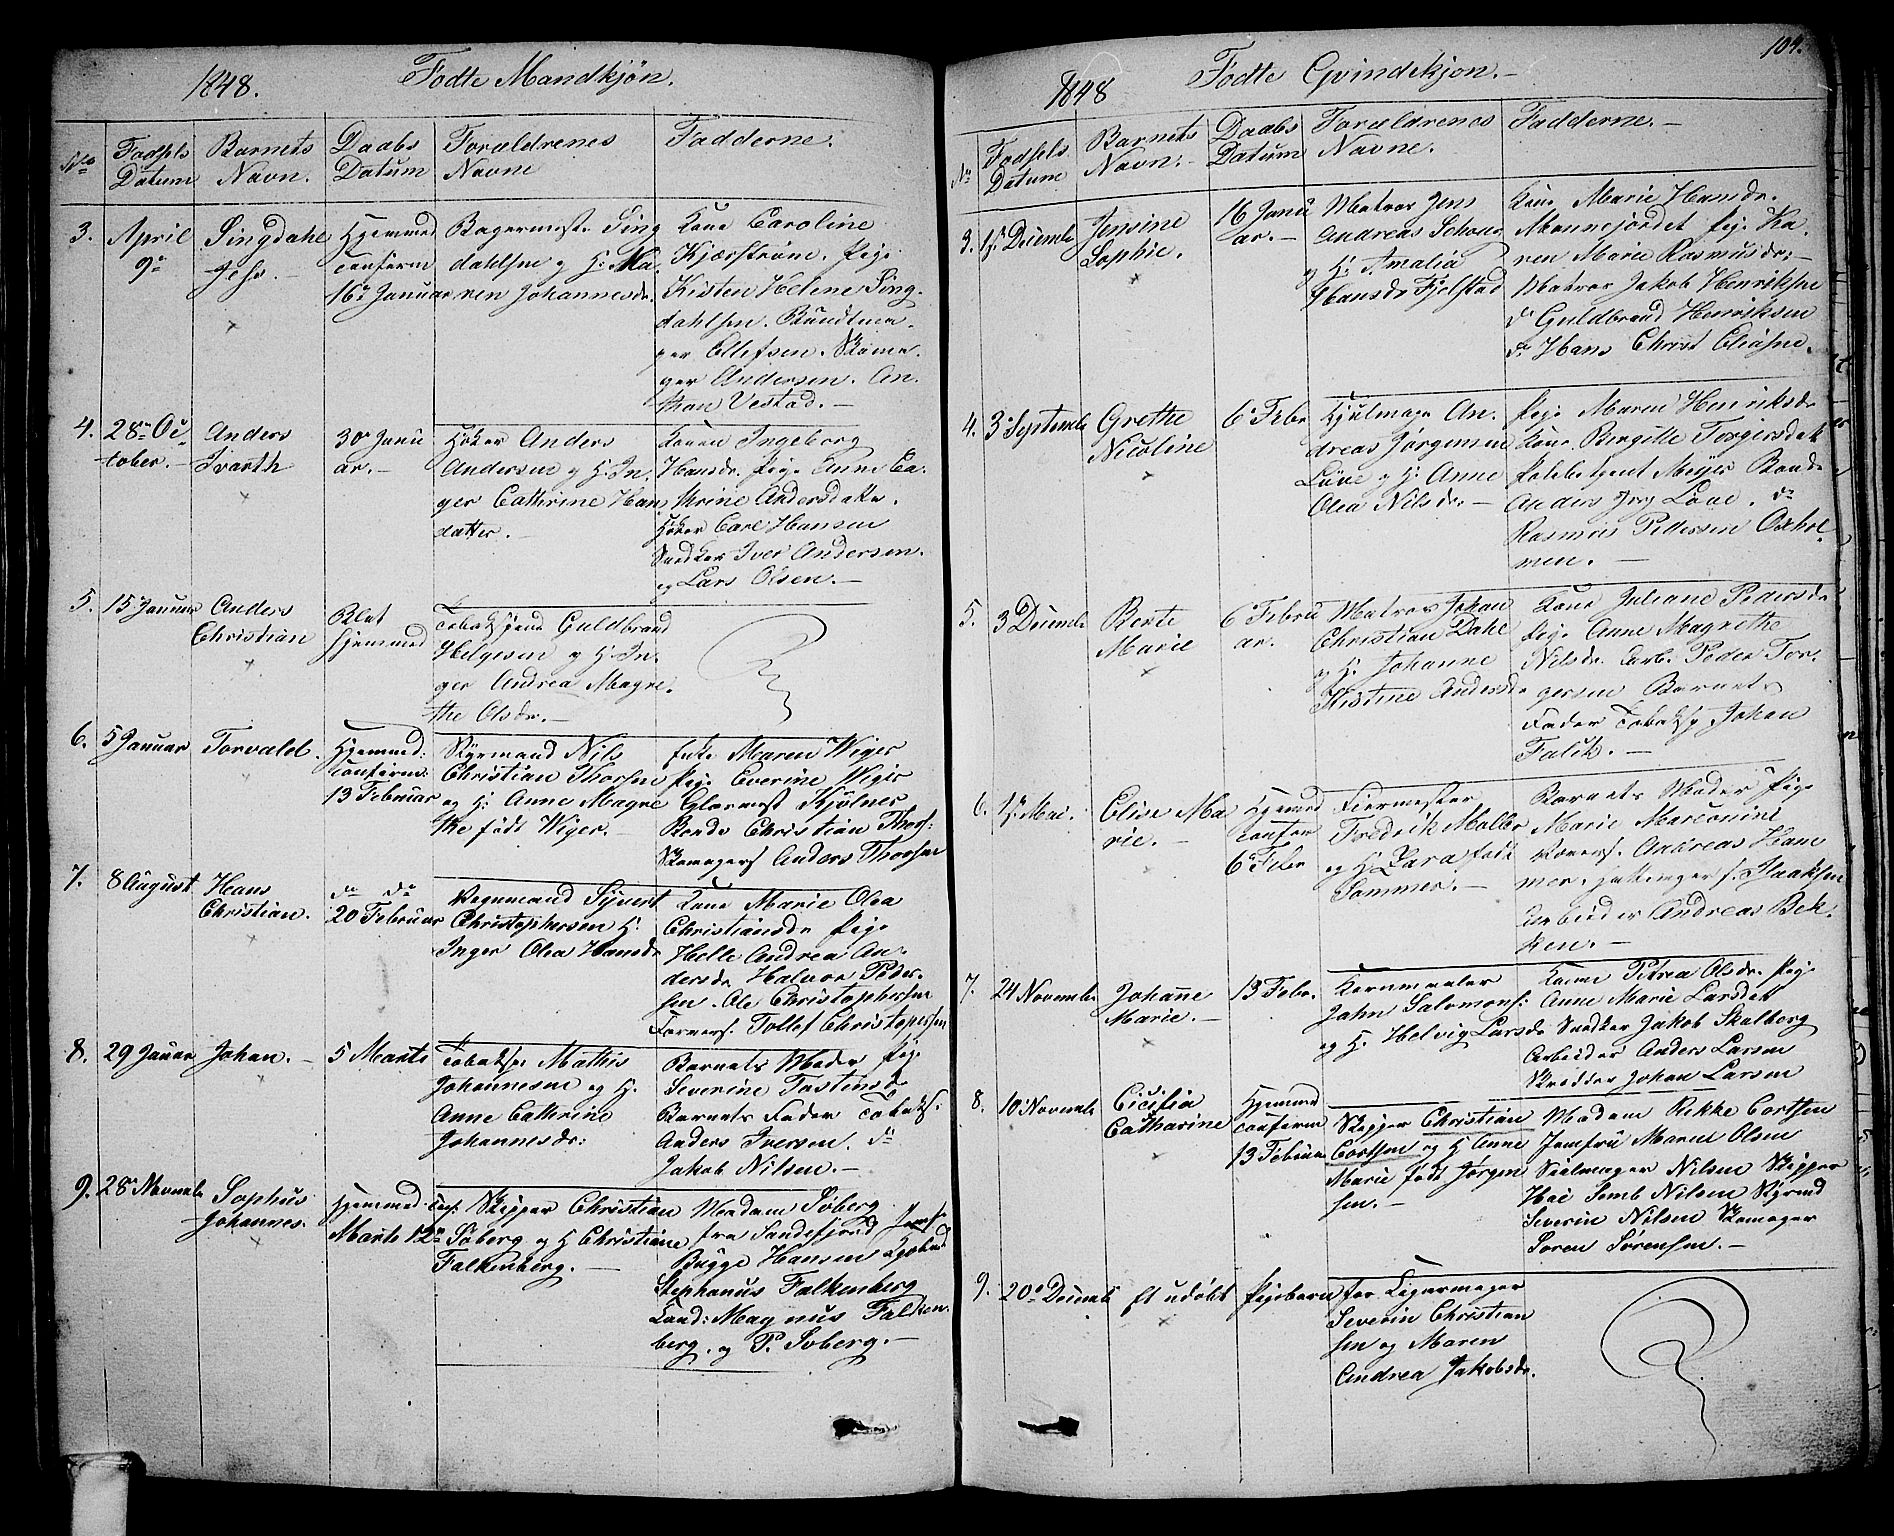 1848. Födte Mandkjön.
No Fødsels Datum Barnets Navn. Daabs Datum Forældrenes Navne Fadderne.
3. April 9de Singdahl
Hjemmed. Confirm 16de Januar
Bagermest. Sing
dahlsen og H: Ma
ren Johannesdr.
Kone Caroline
Kjærström. Pige
Kisten Helene Sing
dahlsen. Bundtma
ger Ellefsen. Skoma
ger Andersen. An
than Vestad.
4. 28de October. Anders
Ivarth
30te Janu
ar.
Höker Anders
Andersen og H: In
ger Cathrine Hans
datter.
Konen Ingeborg
Hansdr. Pige Anne Ca
thrine Andersdatter.
Höker Carl Hansen
Snedker Iver Andersen.
og Lars Olsen.
5. 15 Januar Anders
Christian
Blot
hjemmed
Tobaksspind Guldbrand
Helgesen og H: In
ger Andrea Magre
the Olsdr.
6. 5 Januar Torvald.
Hjemmed:
Confirm:
13 Februar
Styrmand Nils
Christian Thorsen
og H: Anne Magre
the født Wiger.
Enke Maren Wiger
Pige Everine Wiger
Glarmest Kjölner
Bonde Christian Thors:
Skomagers. Anders Thorsen
7. 8 August Hans
Christian.
do do
20 Februar
Vognmand Syvert
Christophersen H:
Inger Olea Hansdr
Kone Marie Olea
Christiansdr Pige
Helle Andrea An
dersdr Halvor Peder
sen. Ole Christophersen
Farvers. Tollef Christopersen
8. 29 Januar Johan.
5 Marts
Tobaksp. Mathis
Johannesen og H.
Anne Cathrine
Johannesdr:
Barnets Moder Pige
Severine Tostensdr
Barnets Fader Tobaks.
Anders Iversen. do
Jakob Nilsen.
9. 28 Novembr Sophus
Johannes.
Hjemmed. Conf.
Marts 12te
Skipper Christian
Søberg og H Christiane
Falkenberg.
Madam Søberg
fra Sandefjord Jomf.
Bugge Hansen
Stephanus Falkenberg
Cand: Magnus Falken
berg. og P. Søberg.
104.
1848 Födte Qvindekjön.
No Fødsels Datum Barnets Navn. Daabs Datum Forældrenes Navne. Fadderne.
3. Decembr Jensine
Sophie.
16 Janu
ar.
Matros Jens
Andreas Schou
og H: Amalia
Hansdr Fjelstad
Kone Marie Hansdr.
Monnejordet Pige Ka
ren Marie Rasmusdr.
Matros Jakob Henriksen
do Guldbrand Henriksen
do Hans Christ Eliasen.
4. 3 Septembr Grethe
Nicoline
6 Febr
Hjulmager An
dreas Jørgensen
Löve og H: Anne
Olea Nilsdr.
Pige Maren Henriksdr
Kone Birgitte Torgersdatt
Anders Jörg Löve. do
Rasmus Pedersen Oxhol
men.
5. 3 Decembr Berte
Marie
6 Febru
ar.
Matros Johan
Christian Dahl
og H: Johanne
Kistine Andersdr
Kone Juliane Pedersdr
Pige Anne Magrethe
Nilsdr. Arb. Peder Tor
gersen Barnets
Fader Tobaksp. Johan
Falck.
6. Mai. Elise Ma
rie.
Hjemmed
Confirm
6 Febr
Feiermester
Fredrik Møller
og H: Zara født
Sommer.
Barnets Moder Pige
Marie Marconine
Andreas Ham
mer. Isaksen
Arbeider Andreas Bek
ken.
7. 24 Novembr Johanne
Marie.
13 Febr.
Kornmaaler
Jahn Salomons:
og H. Helvig Larsdr
Kone Petrea Olsdr. Pige
Anne Marie Larsdatt
Snedker Jakob Skalborg
Arbeider Anders Larsen
Skredder Johan Larsen
8. 10 Novembr Cicilia
Catharine
Hjemmed
Confirm
13 Februar
Skipper Christian
Cortsen og H Anne
Marie født Jörgen
sen.
Madam Rikke Cortsen
Jomfru Maren Olsen
Seilmager Nilsen Skipper
Semb Nilsen Styrmd
Severin Nilsen Skomager
Soren Sørensen.
9. 20de Decembr Et udöbt Pigebarn for Ligarmager
Severin Christian
sen og Maren
Andrea Jakobsdr.